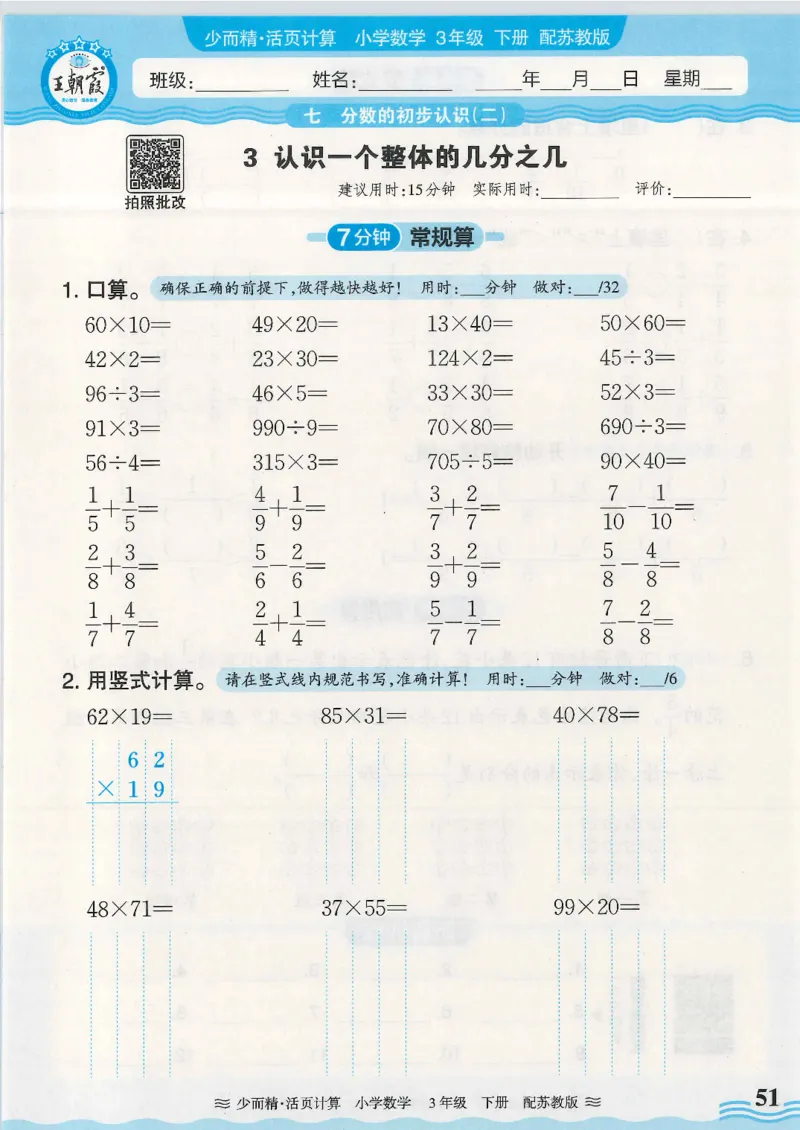 少而精·活页计算 小学数学 3年级 下册 配苏教版
王朝霞
班级:________ 姓名:________ ____年___月___日 星期___
七 分数的初步认识(二)
3 认识一个整体的几分之几
拍照批改
建议用时:15分钟 实际用时:________ 评价:________
7分钟 常规算
1. 口算。 确保正确的前提下,做得越快越好! 用时:___分钟 做对:___/32
60×10= 49×20= 13×40= 50×60=
42×2= 23×30= 124×2= 45÷3=
96÷3= 46×5= 33×30= 52×3=
91×3= 990÷9= 70×80= 690÷3=
56÷4= 315×3= 705÷5= 90×40=
1/5+1/5= 4/9+1/9= 3/7+2/7= 7/10-1/10=
2/8+3/8= 5/6-2/6= 3/9+2/9= 5/8-4/8=
1/7+4/7= 2/4+1/4= 5/7-1/7= 7/8-2/8=
2. 用竖式计算。 请在竖式线内规范书写,准确计算! 用时:___分钟 做对:___/6
62×19= 85×31= 40×78=
6 2
× 1 9
48×71= 37×55= 99×20=
少而精·活页计算 小学数学 3年级 下册 配苏教版
51